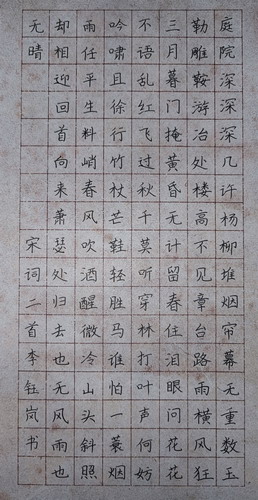 庭院深深深几许杨柳堆烟帘幕无重数玉
勒雕鞍游冶处楼高不见章台路雨横风狂
三月暮门掩黄昏无计留春住泪眼问花花
不语乱红飞过秋千莫听穿林打叶声何妨
吟啸且徐行竹杖芒鞋轻胜马谁怕一蓑烟
雨任平生料峭春风吹酒醒微冷山头斜照
却相迎回首向来萧瑟处归去也无风雨也
无晴 宋词二首李钰岚书